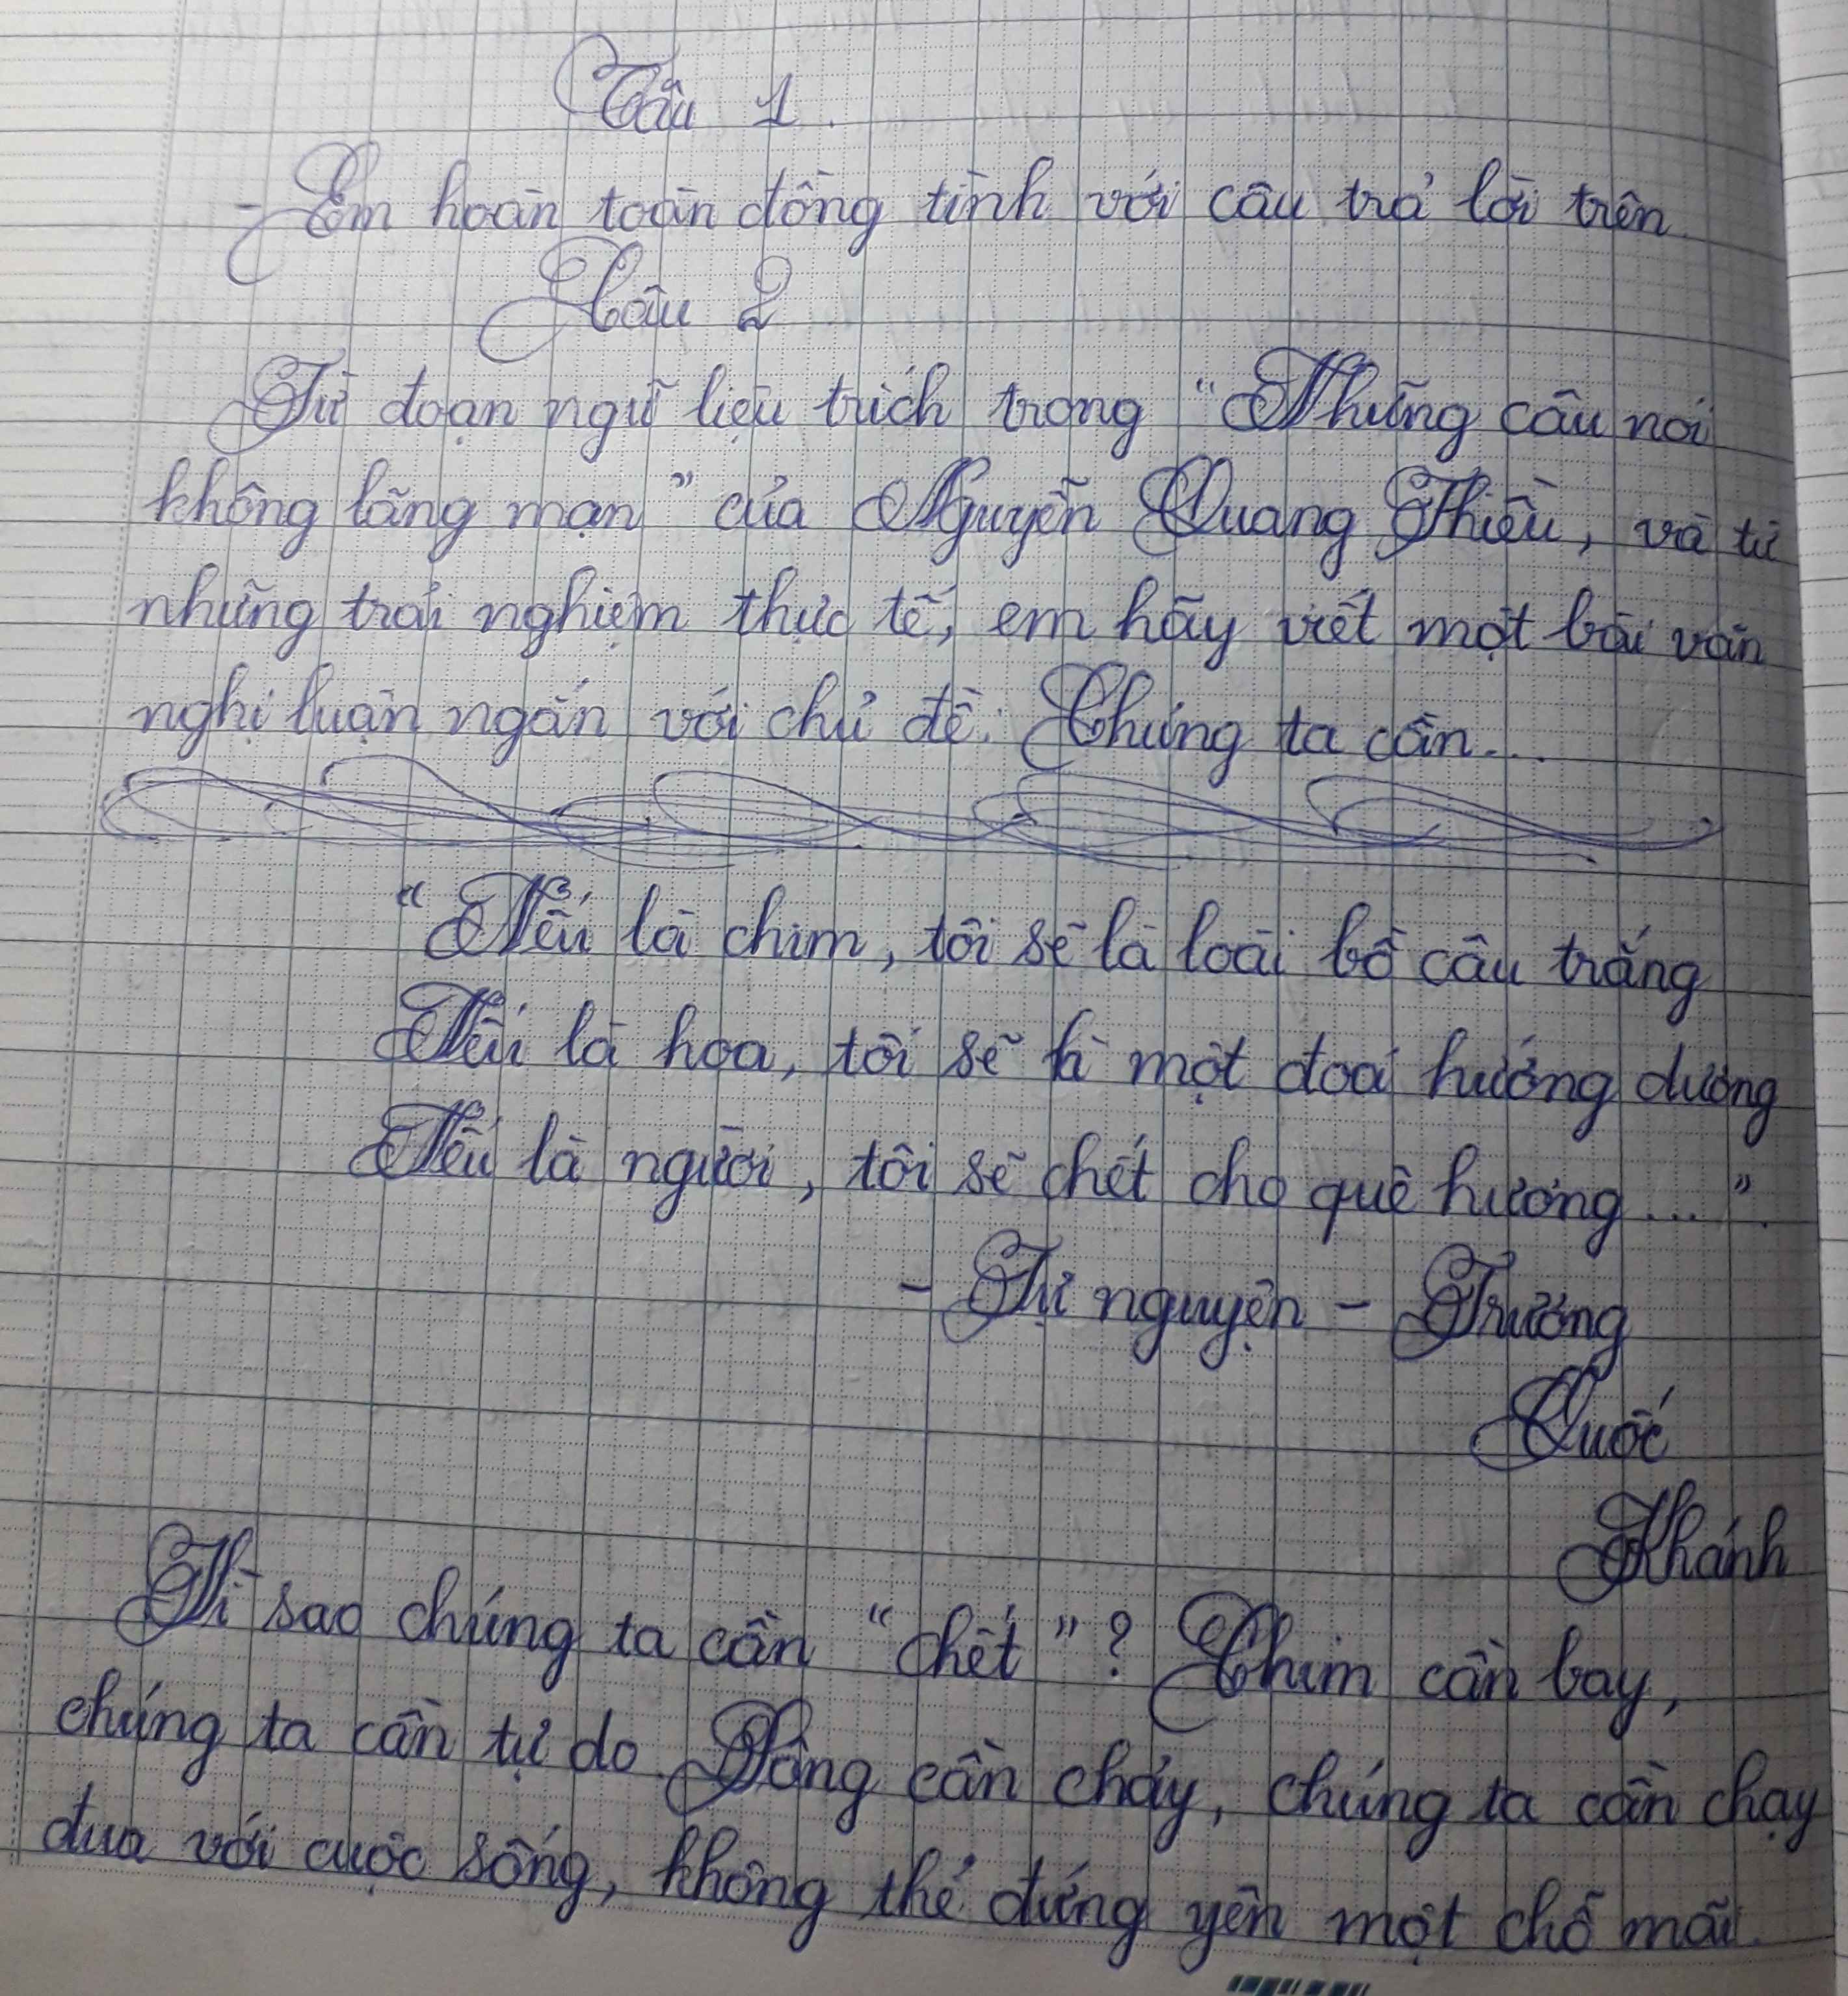 Câu 1.
- Em hoàn toàn đồng tình với câu trả lời trên.
Câu 2
Từ đoạn ngữ liệu trích trong "Những câu nói
không lãng mạn" của Nguyễn Quang Thiều, và từ
những trải nghiệm thực tế, em hãy viết một bài văn
nghị luận ngắn với chủ đề: Chúng ta cần...
"Nếu là chim, tôi sẽ là loài bồ câu trắng
Nếu là hoa, tôi sẽ là một đoá hướng dương
Nếu là người, tôi sẽ chết cho quê hương...".
- Tự nguyện - Trương
Quốc
Khánh
Vì sao chúng ta cần "chết"? Chim cần bay,
chúng ta cần tự do. Sông cần chảy, chúng ta cần chạy
đua với cuộc sống, không thể đứng yên một chỗ mãi.